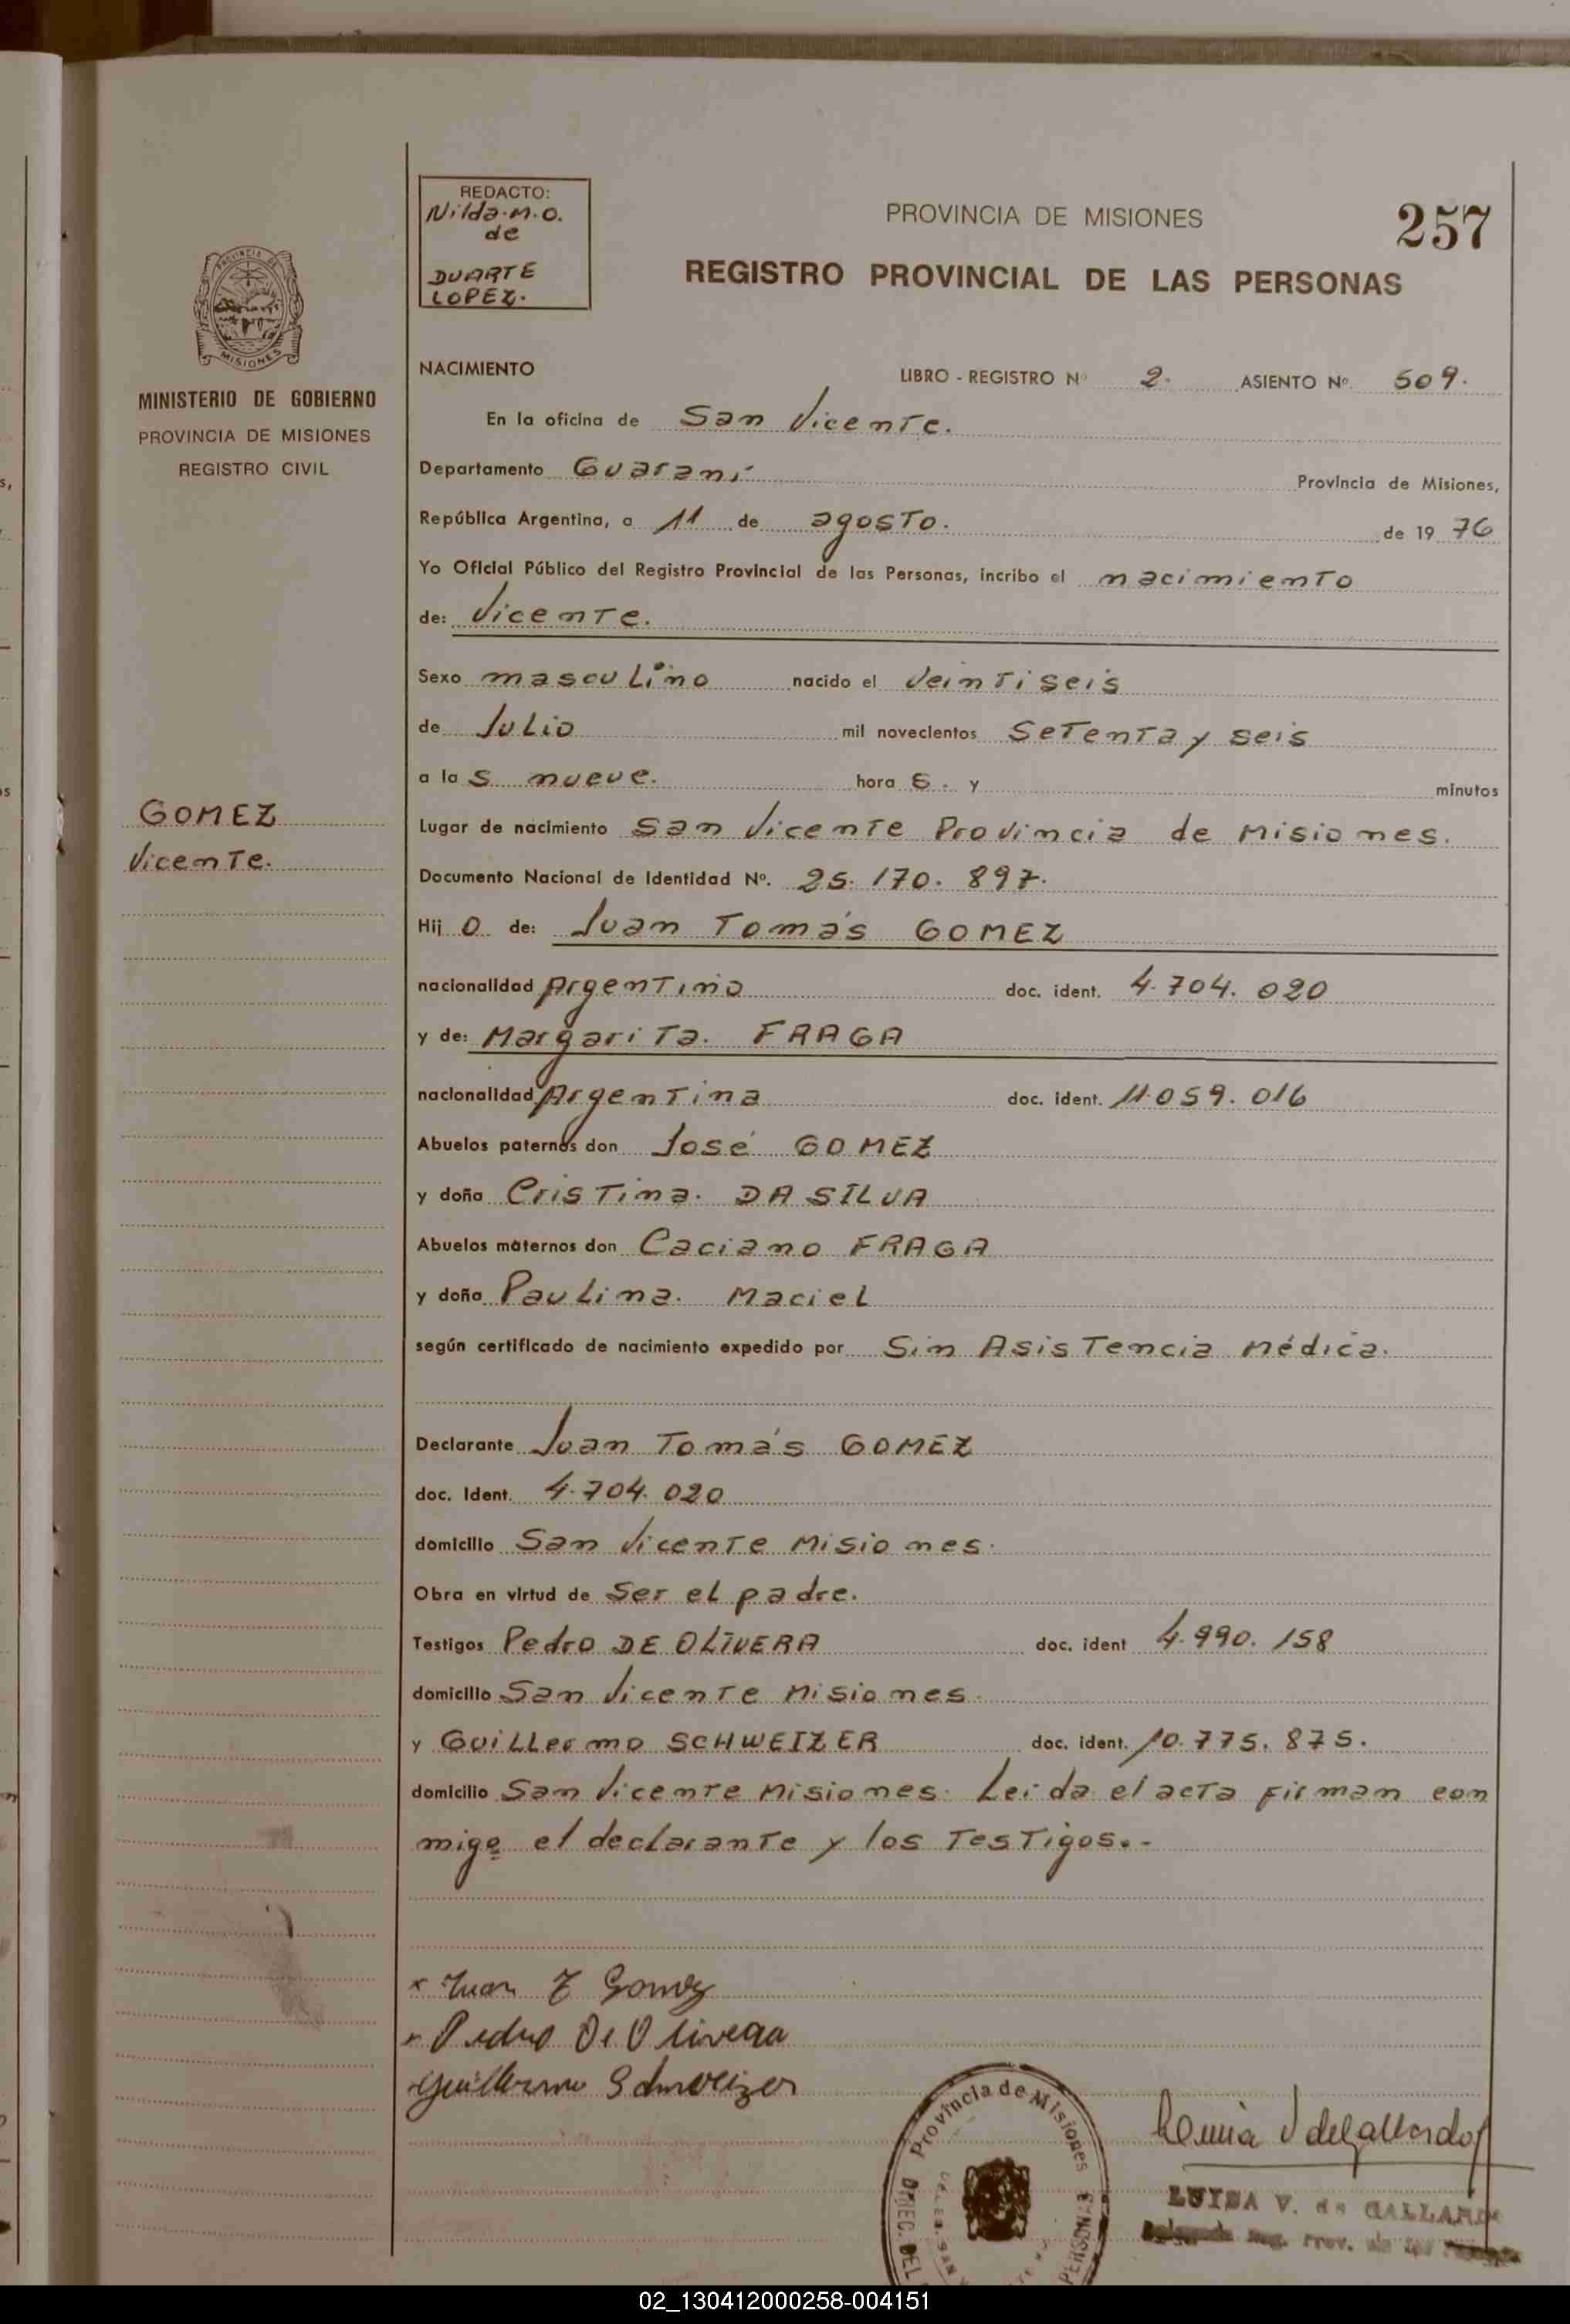 REDACTO:
Nilda.M.O.
de
DUARTE
LOPEZ.
PROVINCIA DE MISIONES
257
REGISTRO PROVINCIAL DE LAS PERSONAS
PROVINCIA DE
MISIONES
MINISTERIO DE GOBIERNO
PROVINCIA DE MISIONES
REGISTRO CIVIL
GOMEZ
Vicente.
NACIMIENTO LIBRO - REGISTRO Nº 2. ASIENTO Nº 509.
En la oficina de San Vicente.
Departamento Guaraní Provincia de Misiones,
República Argentina, a 11 de agosto. de 1976
Yo Oficial Público del Registro Provincial de las Personas, incribo el nacimiento
de: Vicente.
Sexo masculino nacido el veintiseis
de Julio mil novecientos setenta y seis
a las nueve. hora s. y minutos
Lugar de nacimiento San Vicente Provincia de Misiones.
Documento Nacional de Identidad Nº. 25.170.897.
Hijo de: Juan Tomás GOMEZ
nacionalidad Argentino doc. ident. 4.704.020
y de: Margarita. FRAGA
nacionalidad Argentina doc. ident. 11.059.016
Abuelos paternos don José GOMEZ
y doña Cristina. DA SILVA
Abuelos maternos don Caciano FRAGA
y doña Paulina. Maciel
según certificado de nacimiento expedido por Sin Asistencia Médica.
Declarante Juan Tomás GOMEZ
doc. Ident. 4.704.020
domicilio San Vicente Misiones.
Obra en virtud de ser el padre.
Testigos Pedro DE OLIVERA doc. ident 4.990.158
domicilio San Vicente Misiones.
y Guillermo SCHWEIZER doc. ident. 10.775.875.
domicilio San Vicente Misiones. Leida el acta firman con
migo el declarante y los testigos.-
x Juan T Gomez
x Pedro De Olivera
Guillermo Schweizer
Provincia de Misiones
DIREC. DEL
PERSONAS
LUISA V. de GALLARDO
Reg. Prov. de las
02_130412000258-004151